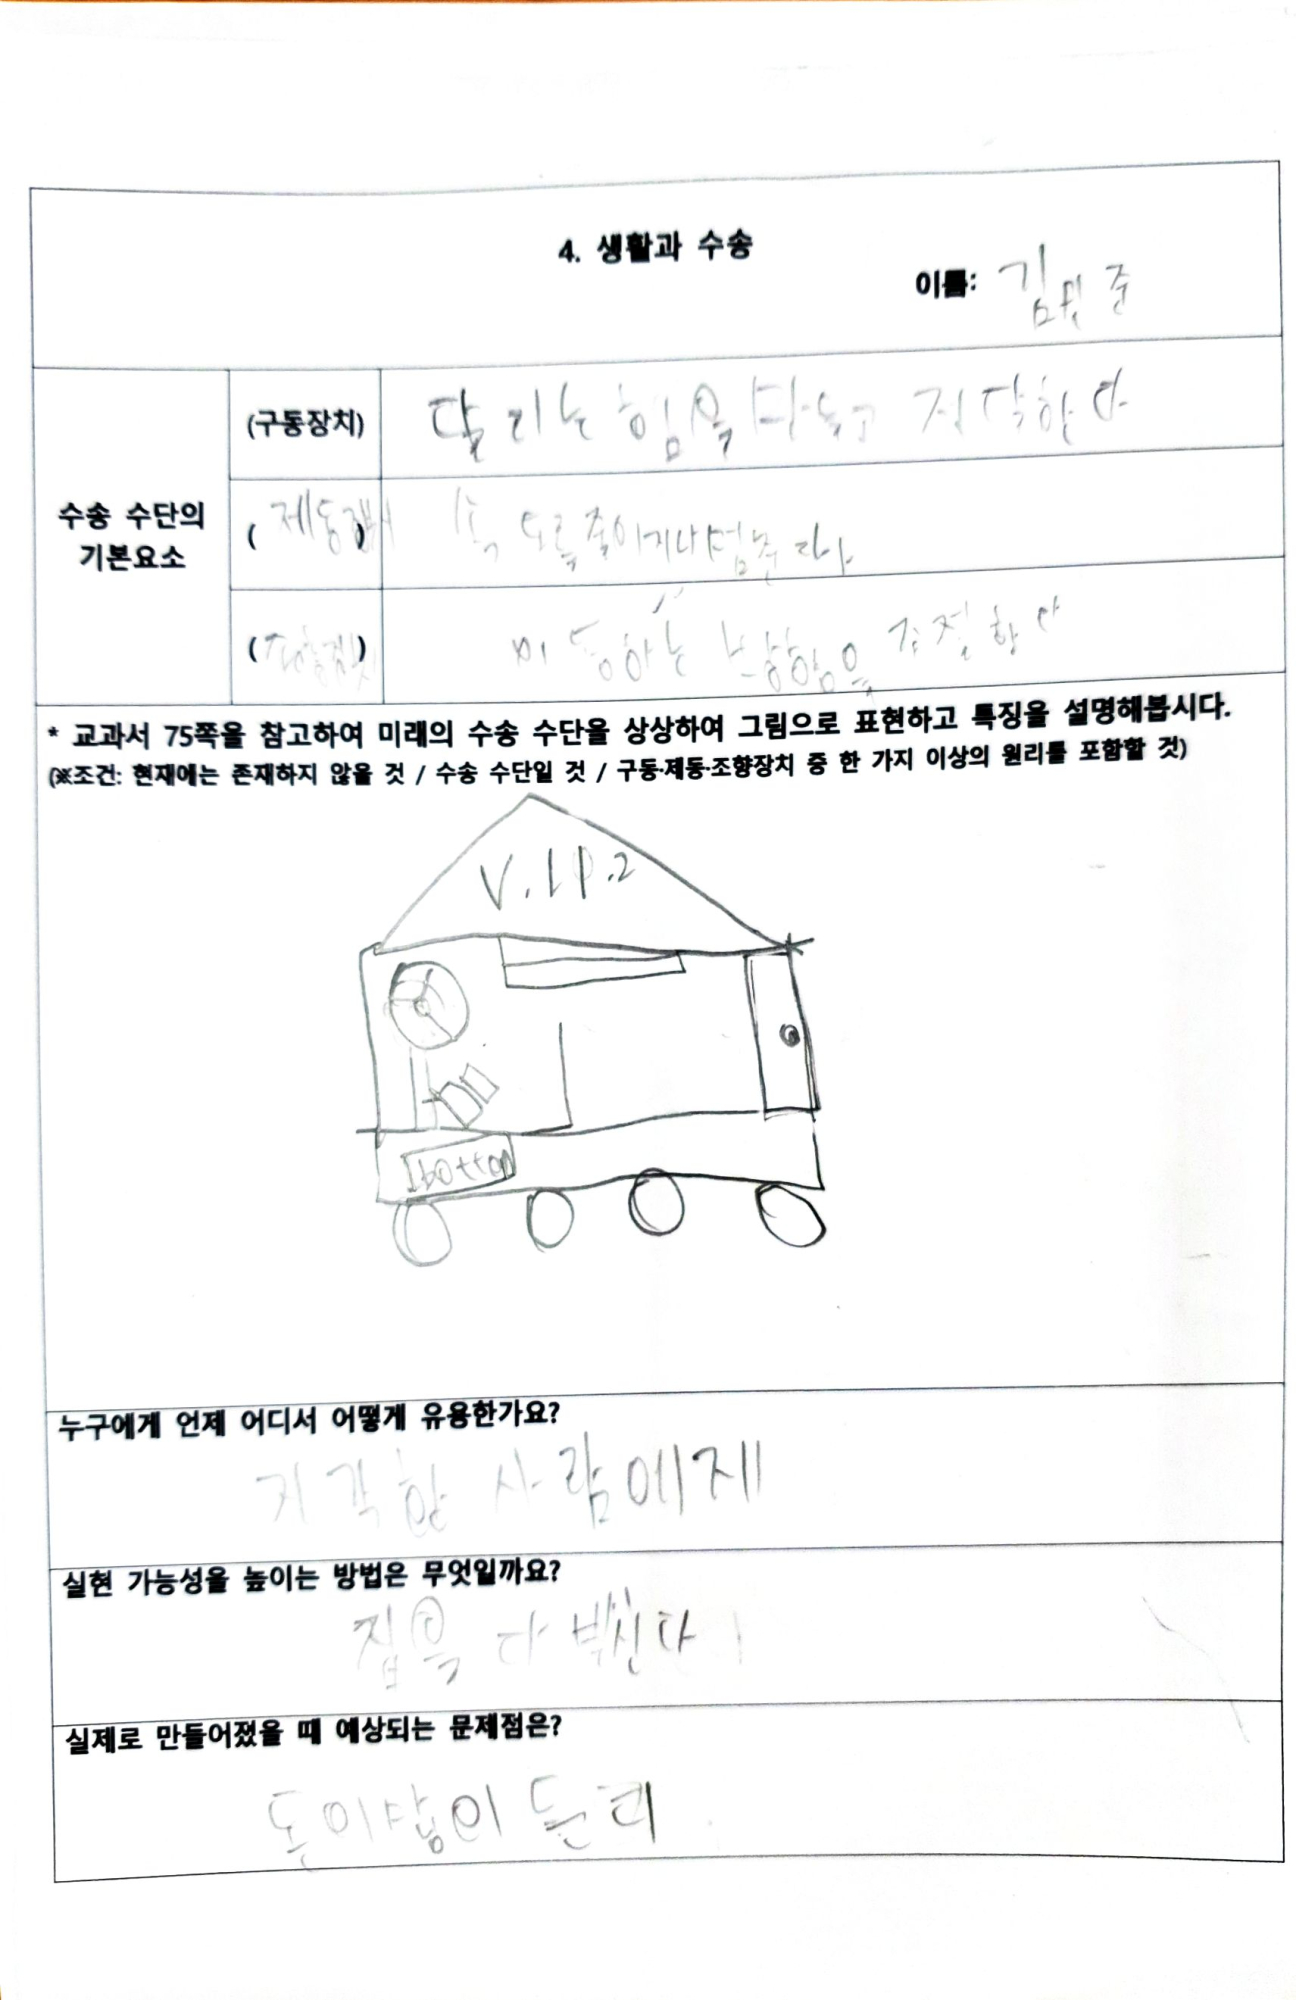 4. 생활과 수송
이름: 김민준
수송 수단의
기본요소
(구동장치) 달리는 힘을 만들고 전달한다
(제동장치) 속도를 줄이거나 멈춘다
( ) 이동하는 조절한다
* 교과서 75쪽을 참고하여 미래의 수송 수단을 상상하여 그림으로 표현하고 특징을 설명해봅시다.
(※조건: 현재에는 존재하지 않을 것 / 수송 수단일 것 / 구동·제동·조향장치 중 한 가지 이상의 원리를 포함할 것)
V.I.P.2
누구에게 언제 어디서 어떻게 유용한가요?
지각한 사람에게
실현 가능성을 높이는 방법은 무엇일까요?
집을 다
실제로 만들어졌을 때 예상되는 문제점은?
돈이 많이 든다